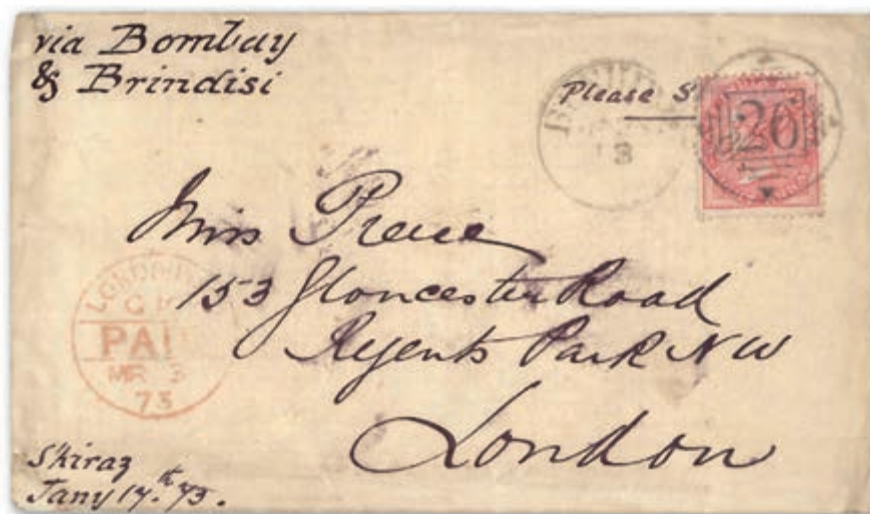 via Bombay
& Brindisi
Please
26
Miss Preece
153 Gloncester Road
Regents Park NW
London
PAI
MR 3
73
Shiraz
Jany 17.th 73.